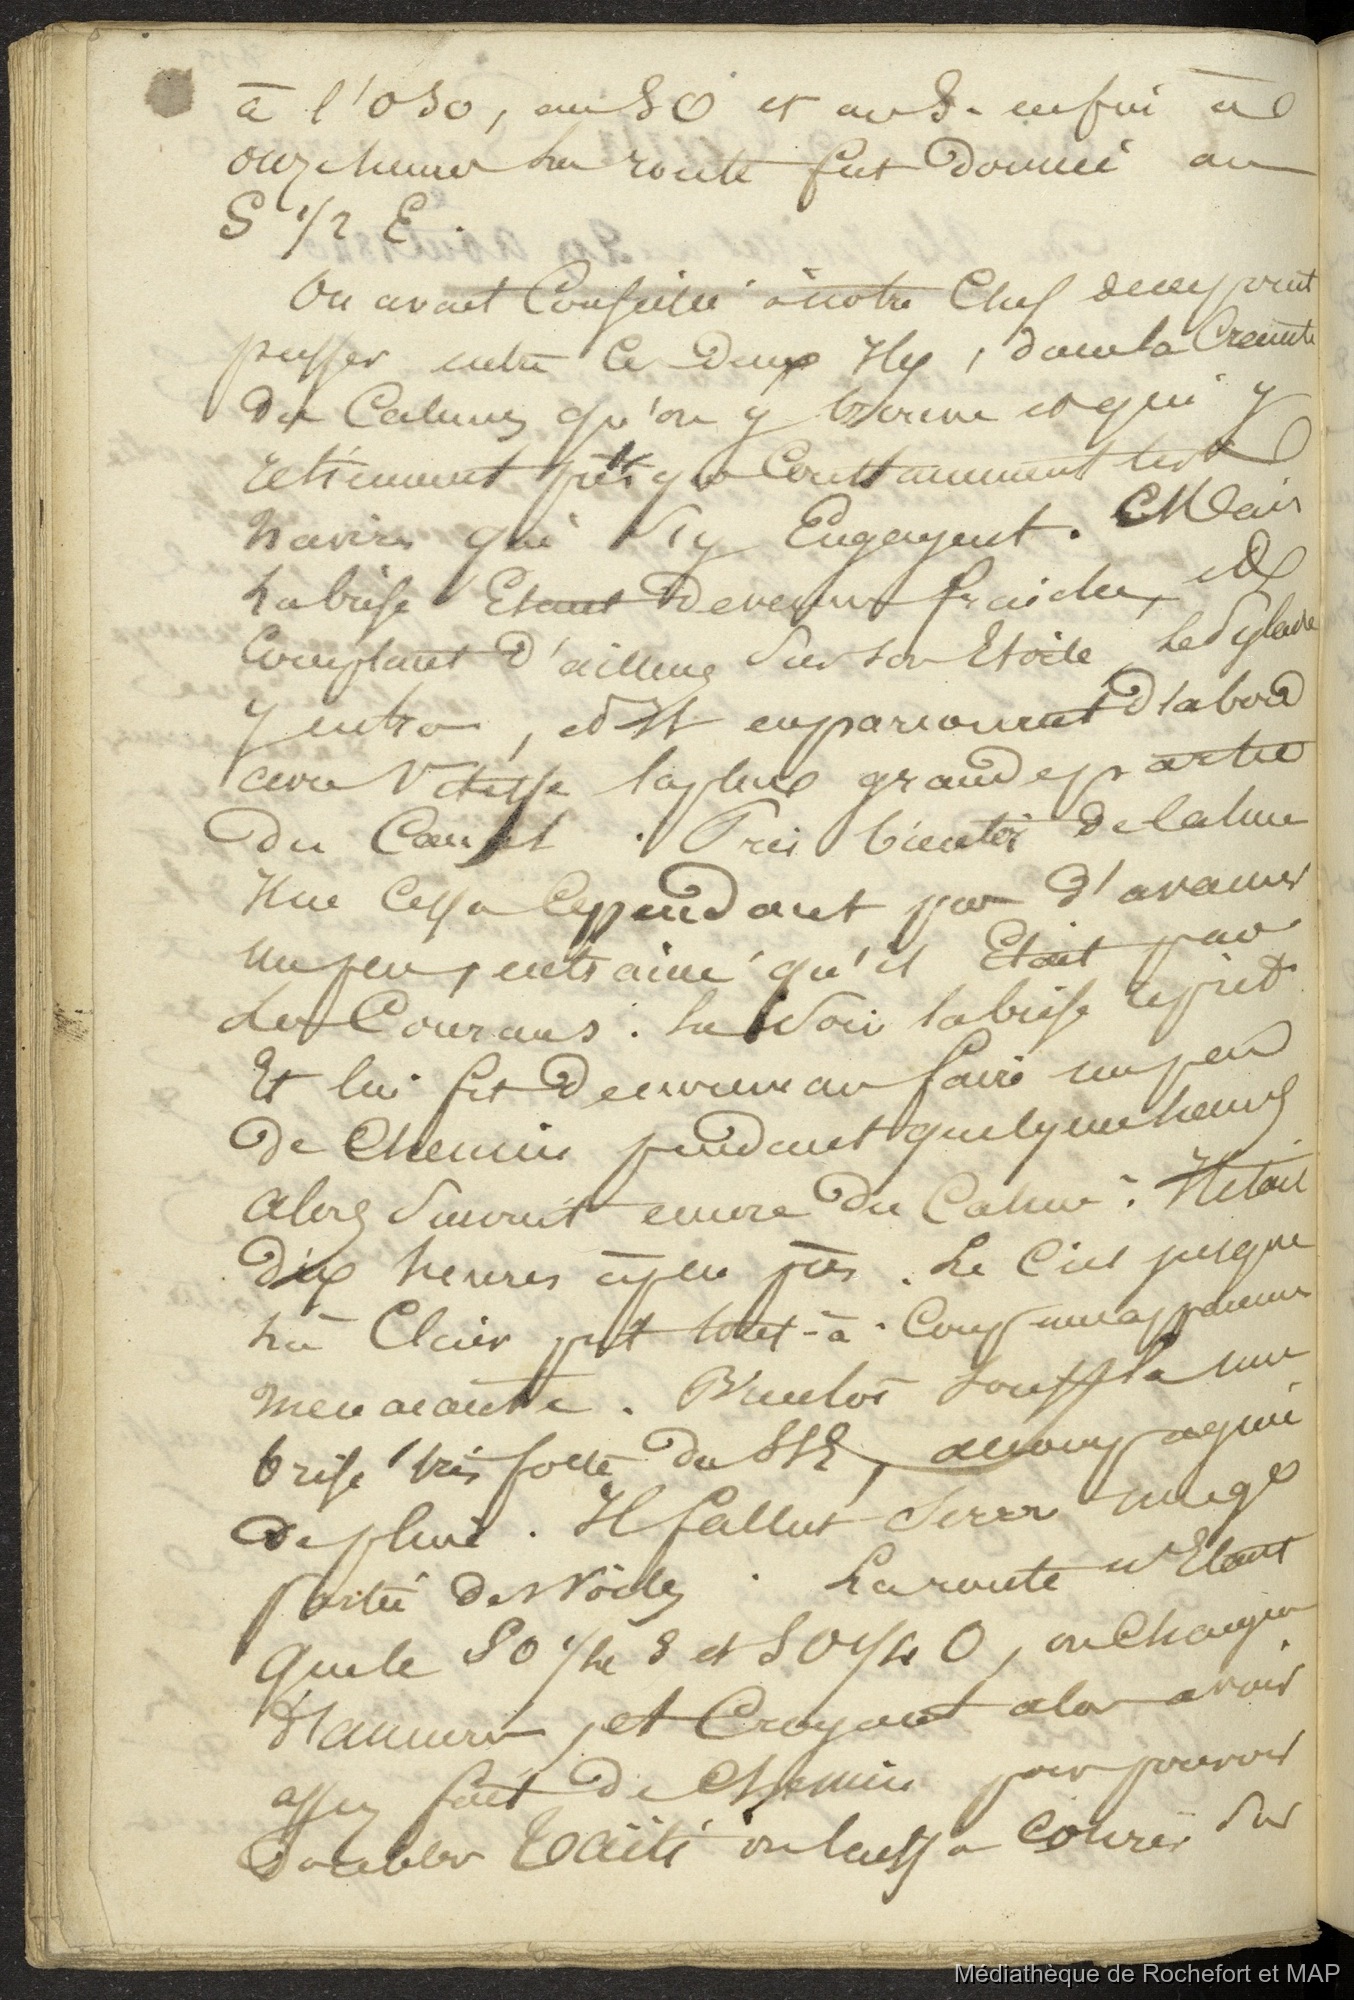 à l'OSO, au SO et au S. enfin à
onze heures la route fut donnée au
S 1/2 E.
On avait Conseillé à notre Chef de ne point
passer entre les Deux Iles, dans la Crainte
Des Calmes qu'on y trouve et qui y
retiennent presque Constamment les
navires qui s'y Engagent. Mais
La brise Etant Devenue fraiche, et
Comptant D'ailleurs Sur son Etoile, Le Pylade
y entra, et Il en parcourut D'abord
avec Vitesse la plus grande partie
Du Canal. Pris bientôt de Calme
Il ne Cessa Cependant pas D'avancer
un peu, entrainé qu'il Etait par
les Courans. Le Soir la brise reprit
Et lui fit De nouveau faire un peu
De Chemin pendant quelques heures
alors Survint encore Du Calme. Il était
Dix heures à peu près. Le Ciel jusque
là Clair prit tout-à-Coup une apparence
menaçante. Bientôt souffla une
brise très forte Du SSE, accompagnée
De pluie. Il fallut Serrer une g^de
partie De Voiles. La route n'Etant
que le SO 1/4 S et SO 1/4 O, on Changea
D'amures, et Croyant alors avoir
assez fait De Chemin pour pouvoir
Doubler Taïti on laissa Courir Sur
Médiathèque de Rochefort et MAP